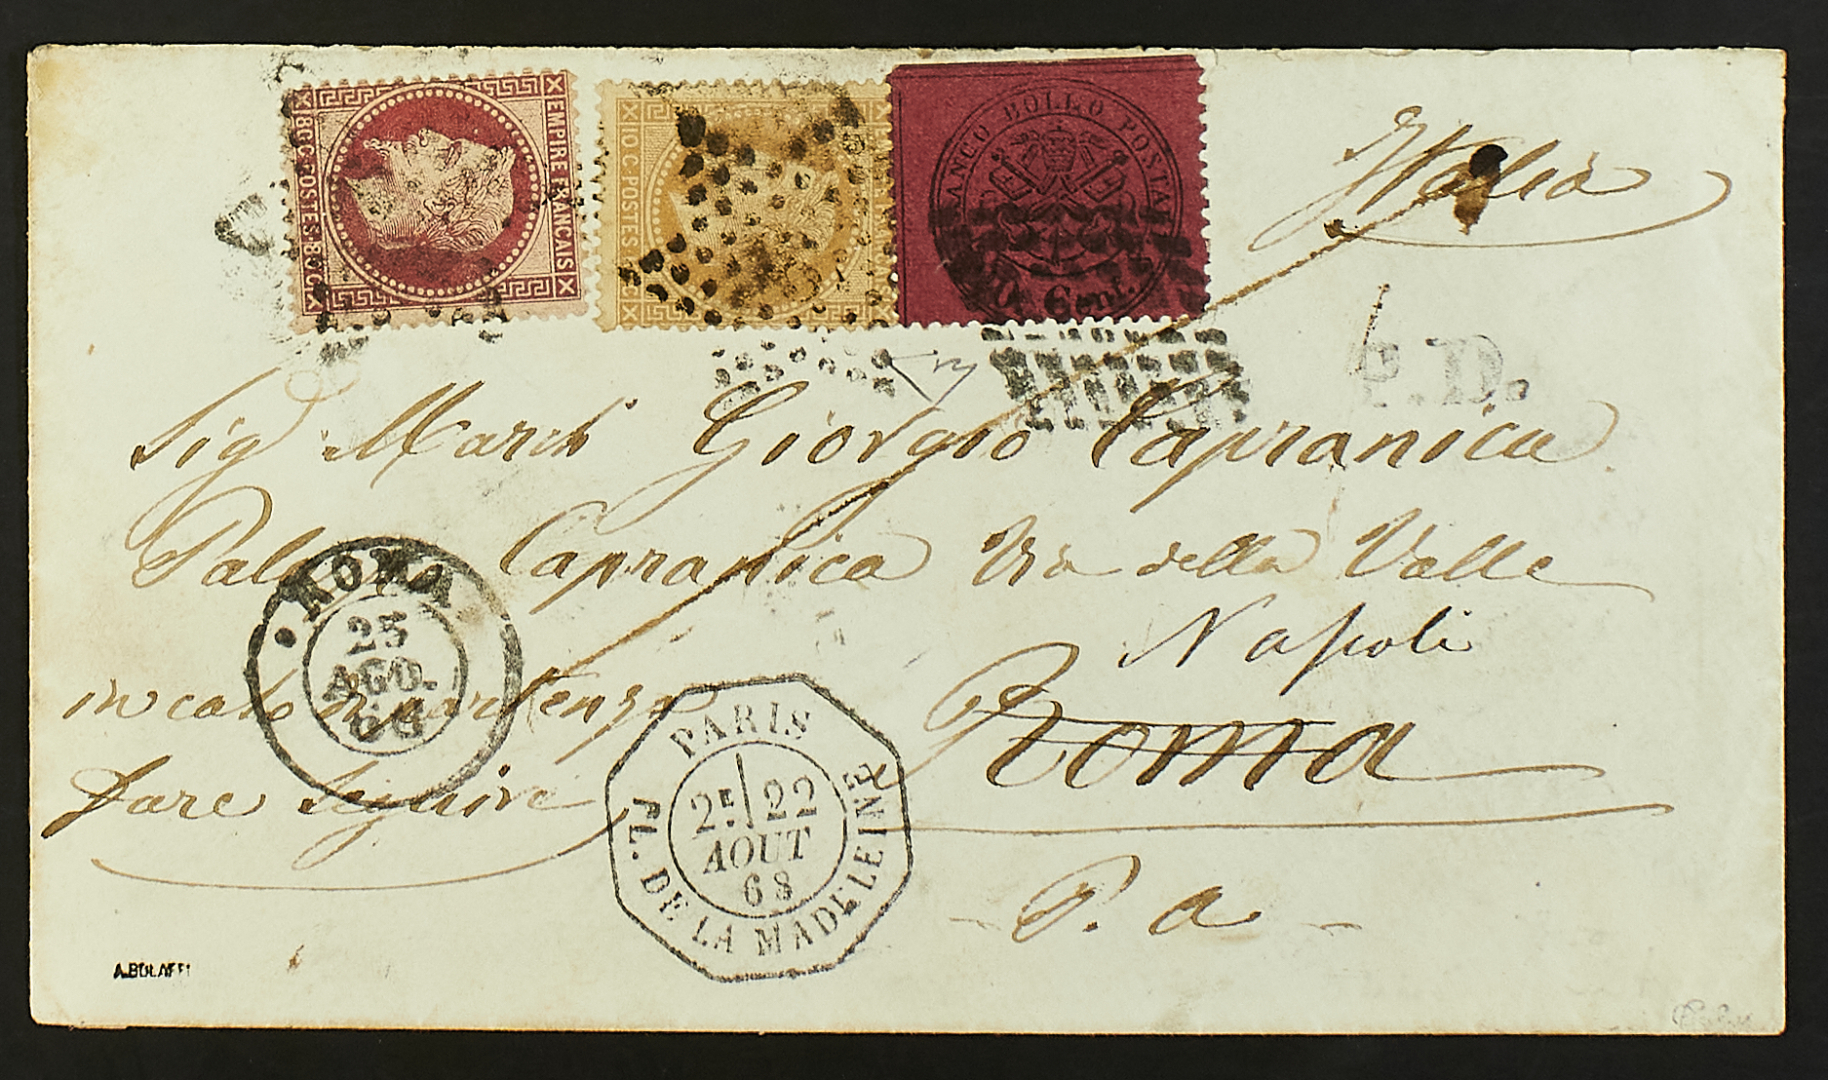 EMPIRE FRANCAIS
80 C POSTES 80 C
10 C POSTES
FRANCO BOLLO POSTALE
20 Cent.
Italia
P.D.
Sig March Giorgio Capranica
Capranica Via della Valle
Napoli
Roma
in caso di partenza
fare seguire
P. a
ROMA
25
AGO.
68
PARIS
22
AOUT
68
PL. DE LA MADELEINE
A.BOLAFFI